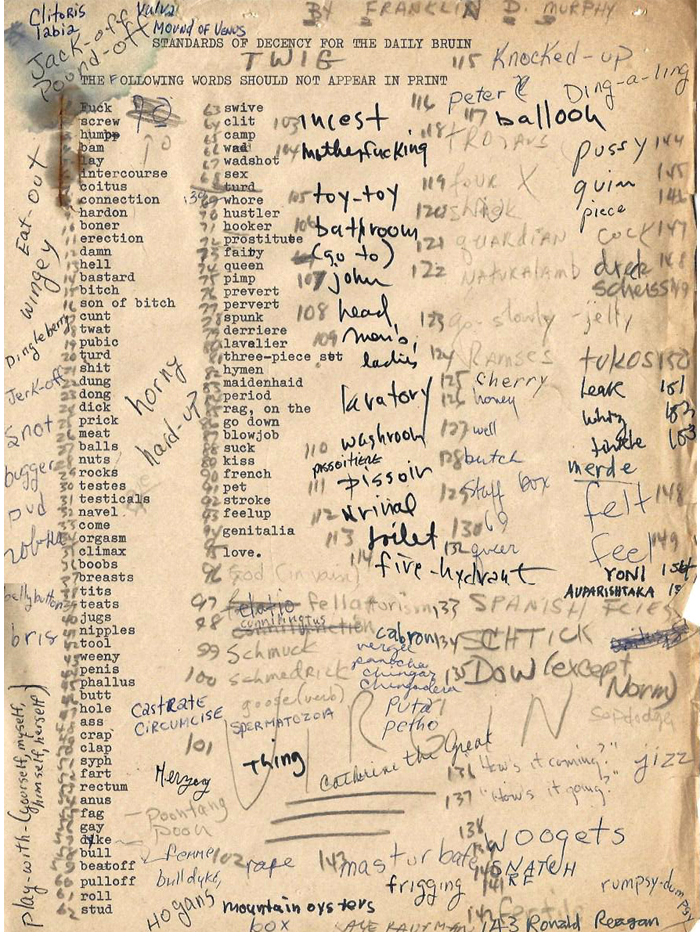 Clitoris
labia
Vulva
Mound of Venus
Jack-off
Pound-off
BY FRANKLIN D. MURPHY
STANDARDS OF DECENCY FOR THE DAILY BRUIN
TWIG
THE FOLLOWING WORDS SHOULD NOT APPEAR IN PRINT
Fuck
screw
hump
bam
lay
intercourse
coitus
connection
hardon
boner
erection
damn
hell
bastard
bitch
son of bitch
cunt
twat
pubic
turd
shit
dung
dong
dick
prick
meat
balls
nuts
rocks
testes
testicals
navel
come
orgasm
climax
boobs
breasts
tits
teats
jugs
nipples
tool
weeny
penis
phallus
butt
hole
ass
crap
clap
syph
fart
rectum
anus
fag
gay
dyke
bull
beatoff
pulloff
roll
stud
63 swive
64 clit
65 camp
66 wad
67 wadshot
68 sex
turd
69 whore
70 hustler
71 hooker
72 prostitute
73 faity
74 queen
75 pimp
76 prevert
77 pervert
78 spunk
derriere
lavalier
81 three-piece set
hymen
maidenhaid
period
rag, on the
go down
blowjob
suck
89 kiss
90 french
91 pet
92 stroke
93 feelup
94 genitalia
95 love.
96 God (in vain)
97 fellatorism
cunnilingus
98
99 Schmuck
100 schmedrick
goose (verb)
SPERMATOZOA
CASTRATE
CIRCUMCISE
101
Thing
Merzey
Poontang
Poon
femme
bull dyke,
102 rape
Hogans
mountain oysters
box
horny
hard-up
Eat-out
Wingey
Dingleberry
Jerk-off
Snot
bugger
pud
bellybutton
bris
Play-with-(yourself, myself,
himself, herself)
103 incest
104 motherfucking
105 toy-toy
106 bathroom
(go to)
107 john
108 head,
109 men's,
ladies
lavatory
110 washroom
pissoitiere
111 pissoir
112 urinal
113 toilet
114 five-hydrant
cabron
verga
panocha
chingar
chingadera
Puta
Petho
Catherine the Great
VIRGIN
115 Knocked-up
116 peter
Ding-a-ling
117 balloon
118 TROJANS
119 four X
120 shiek
121 GUARDIAN
122 NATURALAMB
123 go slowly - jelly
124 RAMSES
125 cherry
126 honey
127 well
128 butch
129 stuff box
130 69
132 queer
133 SPANISH FLIES
134 SCHTICK
135 DOW (except
Norm)
Sapdodger
136 "How's it coming?"
137 "How's it going?"
jizz
138 Woogets
143 masturbate
frigging
140 SNATCH
141
rumpsy-dumpsy
142 fertile
143 Ronald Reagan
pussy 144
quim 145
piece 146
COCK 147
dreck 148
scheiss 149
tukos 150
Leake 151
whiz 152
tinkle 153
merde
felt 148
feel 149
YONI 154
AUPARISHTAKA